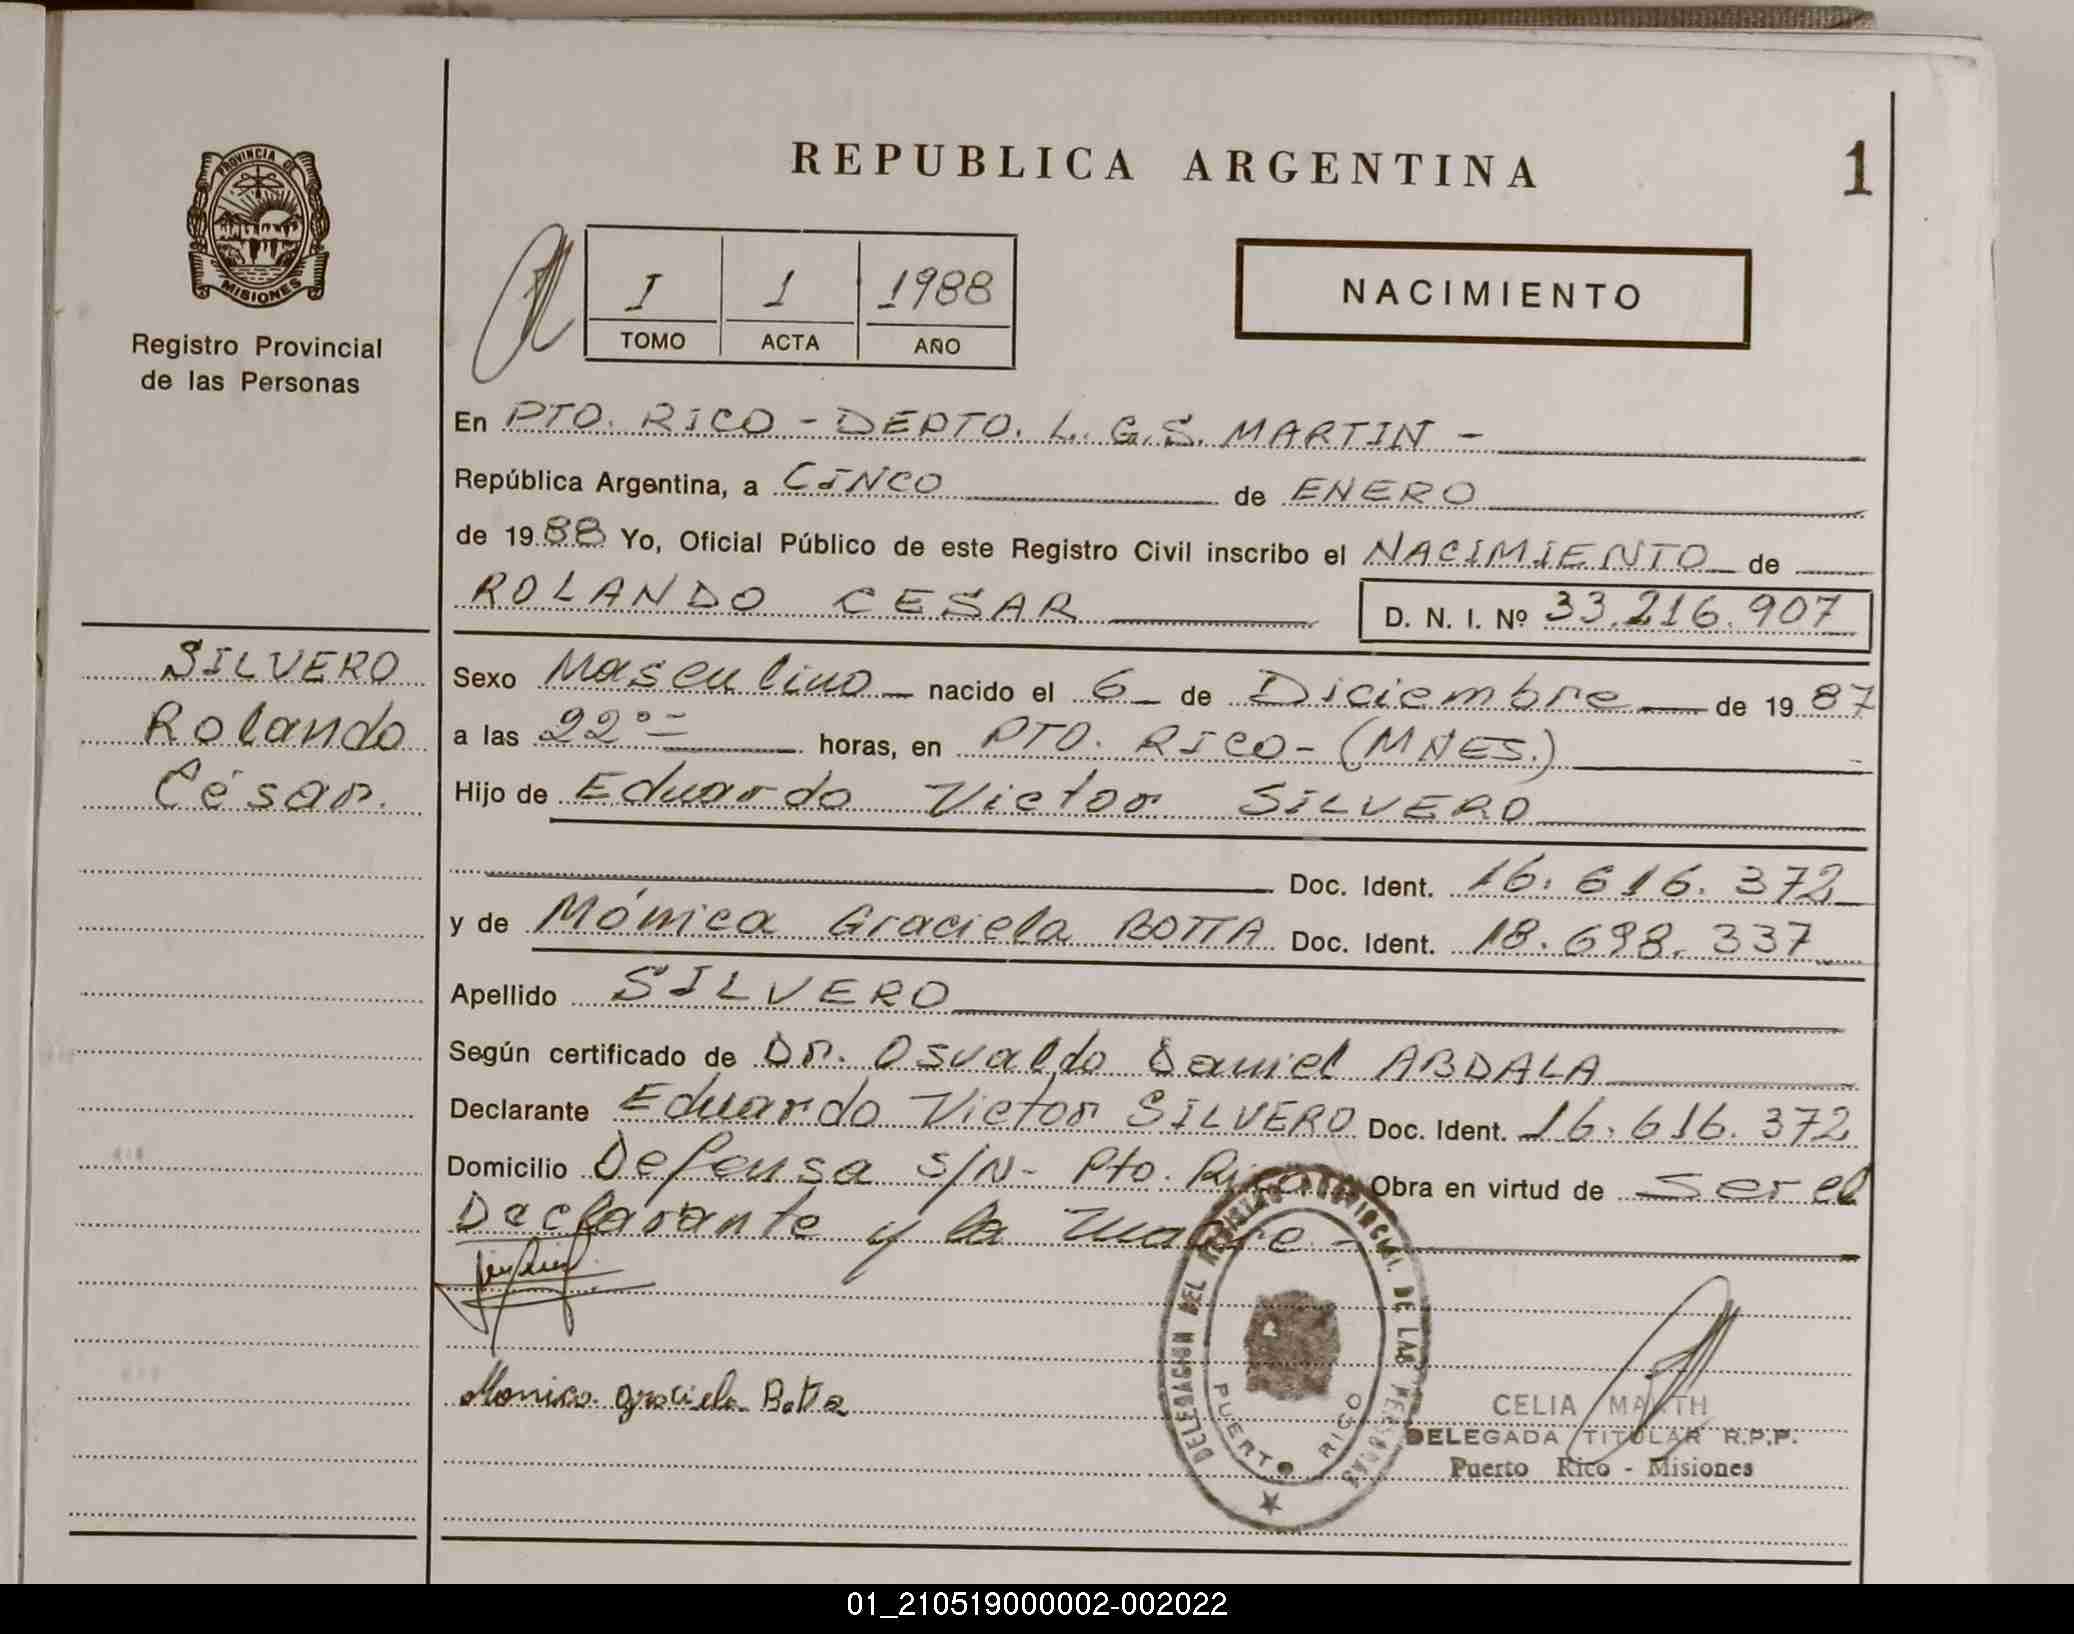 REPUBLICA ARGENTINA
1
PROVINCIA DE
MISIONES
Registro Provincial
de las Personas
I 1 1988
TOMO ACTA AÑO
NACIMIENTO
En PTO. RICO - DEPTO. L. G. S. MARTIN -
República Argentina, a CINCO de ENERO
de 1988 Yo, Oficial Público de este Registro Civil inscribo el NACIMIENTO de
ROLANDO CESAR D. N. I. Nº 33.216.907
SILVERO
Rolando
César.
Sexo Masculino nacido el 6 de Diciembre de 1987
a las 22º horas, en PTO. RICO - (MNES.)
Hijo de Eduardo Victor SILVERO
Doc. Ident. 16.616.372
y de Mónica Graciela BOTTA Doc. Ident. 18.698.337
Apellido SILVERO
Según certificado de Dr. Osvaldo Daniel ABDALA
Declarante Eduardo Victor SILVERO Doc. Ident. 16.616.372
Domicilio Defensa S/N - Pto. Rico Obra en virtud de ser el
Declarante y la madre -
Monica Graciela Botta
DELEGACION DEL REGISTRO PROVINCIAL DE LAS PERSONAS
PUERTO RICO
CELIA MARTH
DELEGADA TITULAR R.P.P.
Puerto Rico - Misiones
01_210519000002-002022